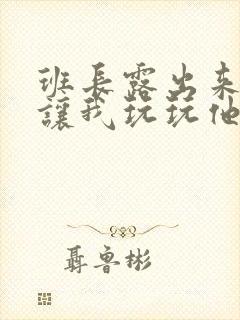 班長露出来
讓我玩玩他
聶魯彬